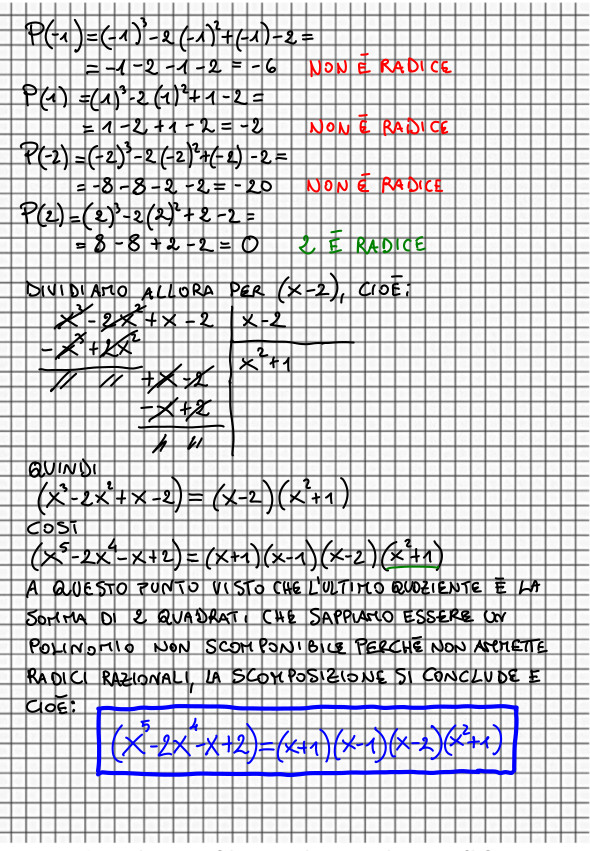 P(-1)=(-1)³-2(-1)²+(-1)-2=
=-1-2-1-2=-6 NON È RADICE
P(1)=(1)³-2(1)²+1-2=
=1-2+1-2=-2 NON È RADICE
P(-2)=(-2)³-2(-2)²+(-2)-2=
=-8-8-2-2=-20 NON È RADICE
P(2)=(2)³-2(2)²+2-2=
=8-8+2-2=0 2 È RADICE
DIVIDIAMO ALLORA PER (x-2), CIOÈ:
x³-2x²+x-2 x-2
-x³+2x² x²+1
// // +x-2
-x+2
// //
QUINDI
(x³-2x²+x-2)=(x-2)(x²+1)
COSÌ
(x⁵-2x⁴-x+2)=(x+1)(x-1)(x-2)(x²+1)
A QUESTO PUNTO VISTO CHE L'ULTIMO QUOZIENTE È LA
SOMMA DI 2 QUADRATI CHE SAPPIAMO ESSERE UN
POLINOMIO NON SCOMPONIBILE PERCHÈ NON AMMETTE
RADICI RAZIONALI, LA SCOMPOSIZIONE SI CONCLUDE E
CIOÈ:
(x⁵-2x⁴-x+2)=(x+1)(x-1)(x-2)(x²+1)